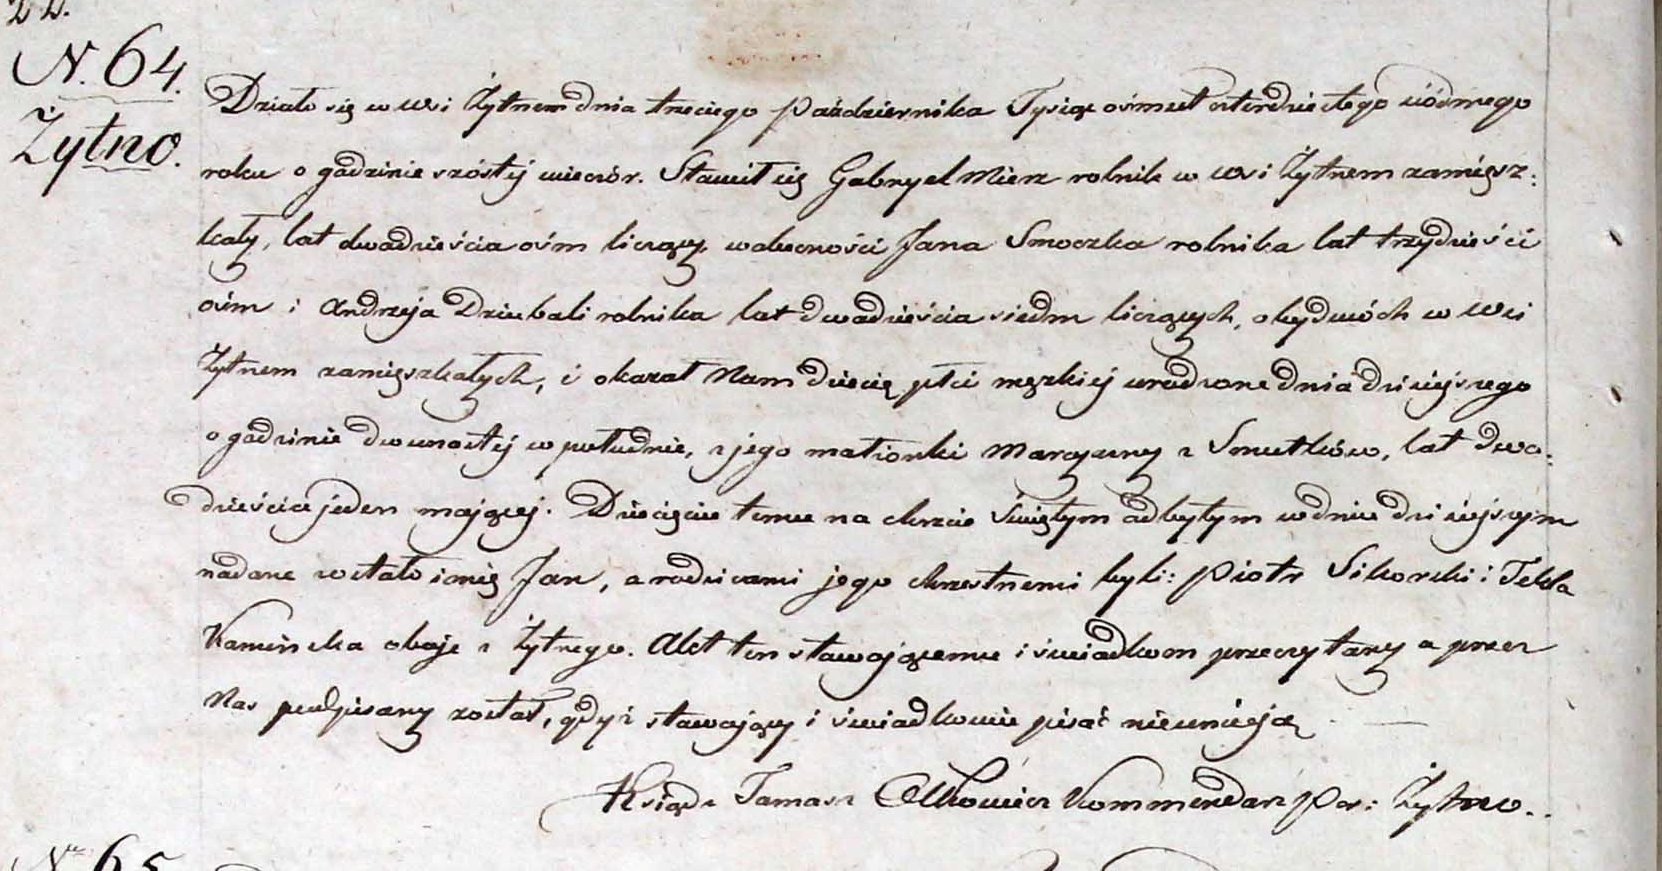 N. 64.
Żytno.
Działo się w wsi Żytnem dnia trzeciego Października Tysiąc ośmset czterdziestego siódmego
roku o godzinie szóstéj wieczór. Stawił się Gabryel Mierz rolnik w wsi Żytnem zamięsz:
kały, lat dwadzieścia ośm liczący, w obecności Jana Smoczka rolnika lat trzydzieści
ośm i Andrzeja Dziubali rolnika lat dwadzieścia siedm liczących, obydwóch w wsi
Żytnem zamięszkałych, i okazał Nam dziecię płci męzkiéj urodzone dnia dzisiejszego
o godzinie dwunastéj w południe, z jego małżonki Maryanny z Smutków, lat dwa:
dzieścia jeden mającej. Dziecięciu temu na chrzcie Świętym odbytym w dniu dzisiejszym
nadane zostało imię Jan, a rodzicami jego chrzestnemi byli: Piotr Sikorski i Tekla
Kamińska oboje z Żytnego. Akt ten stawającemu i świadkom przeczytany a przez
Nas podpisany został, gdyż stawający i świadkowie pisać nieumieją
Ksiądz Tomasz Kommendarz Par: Żytno..
65